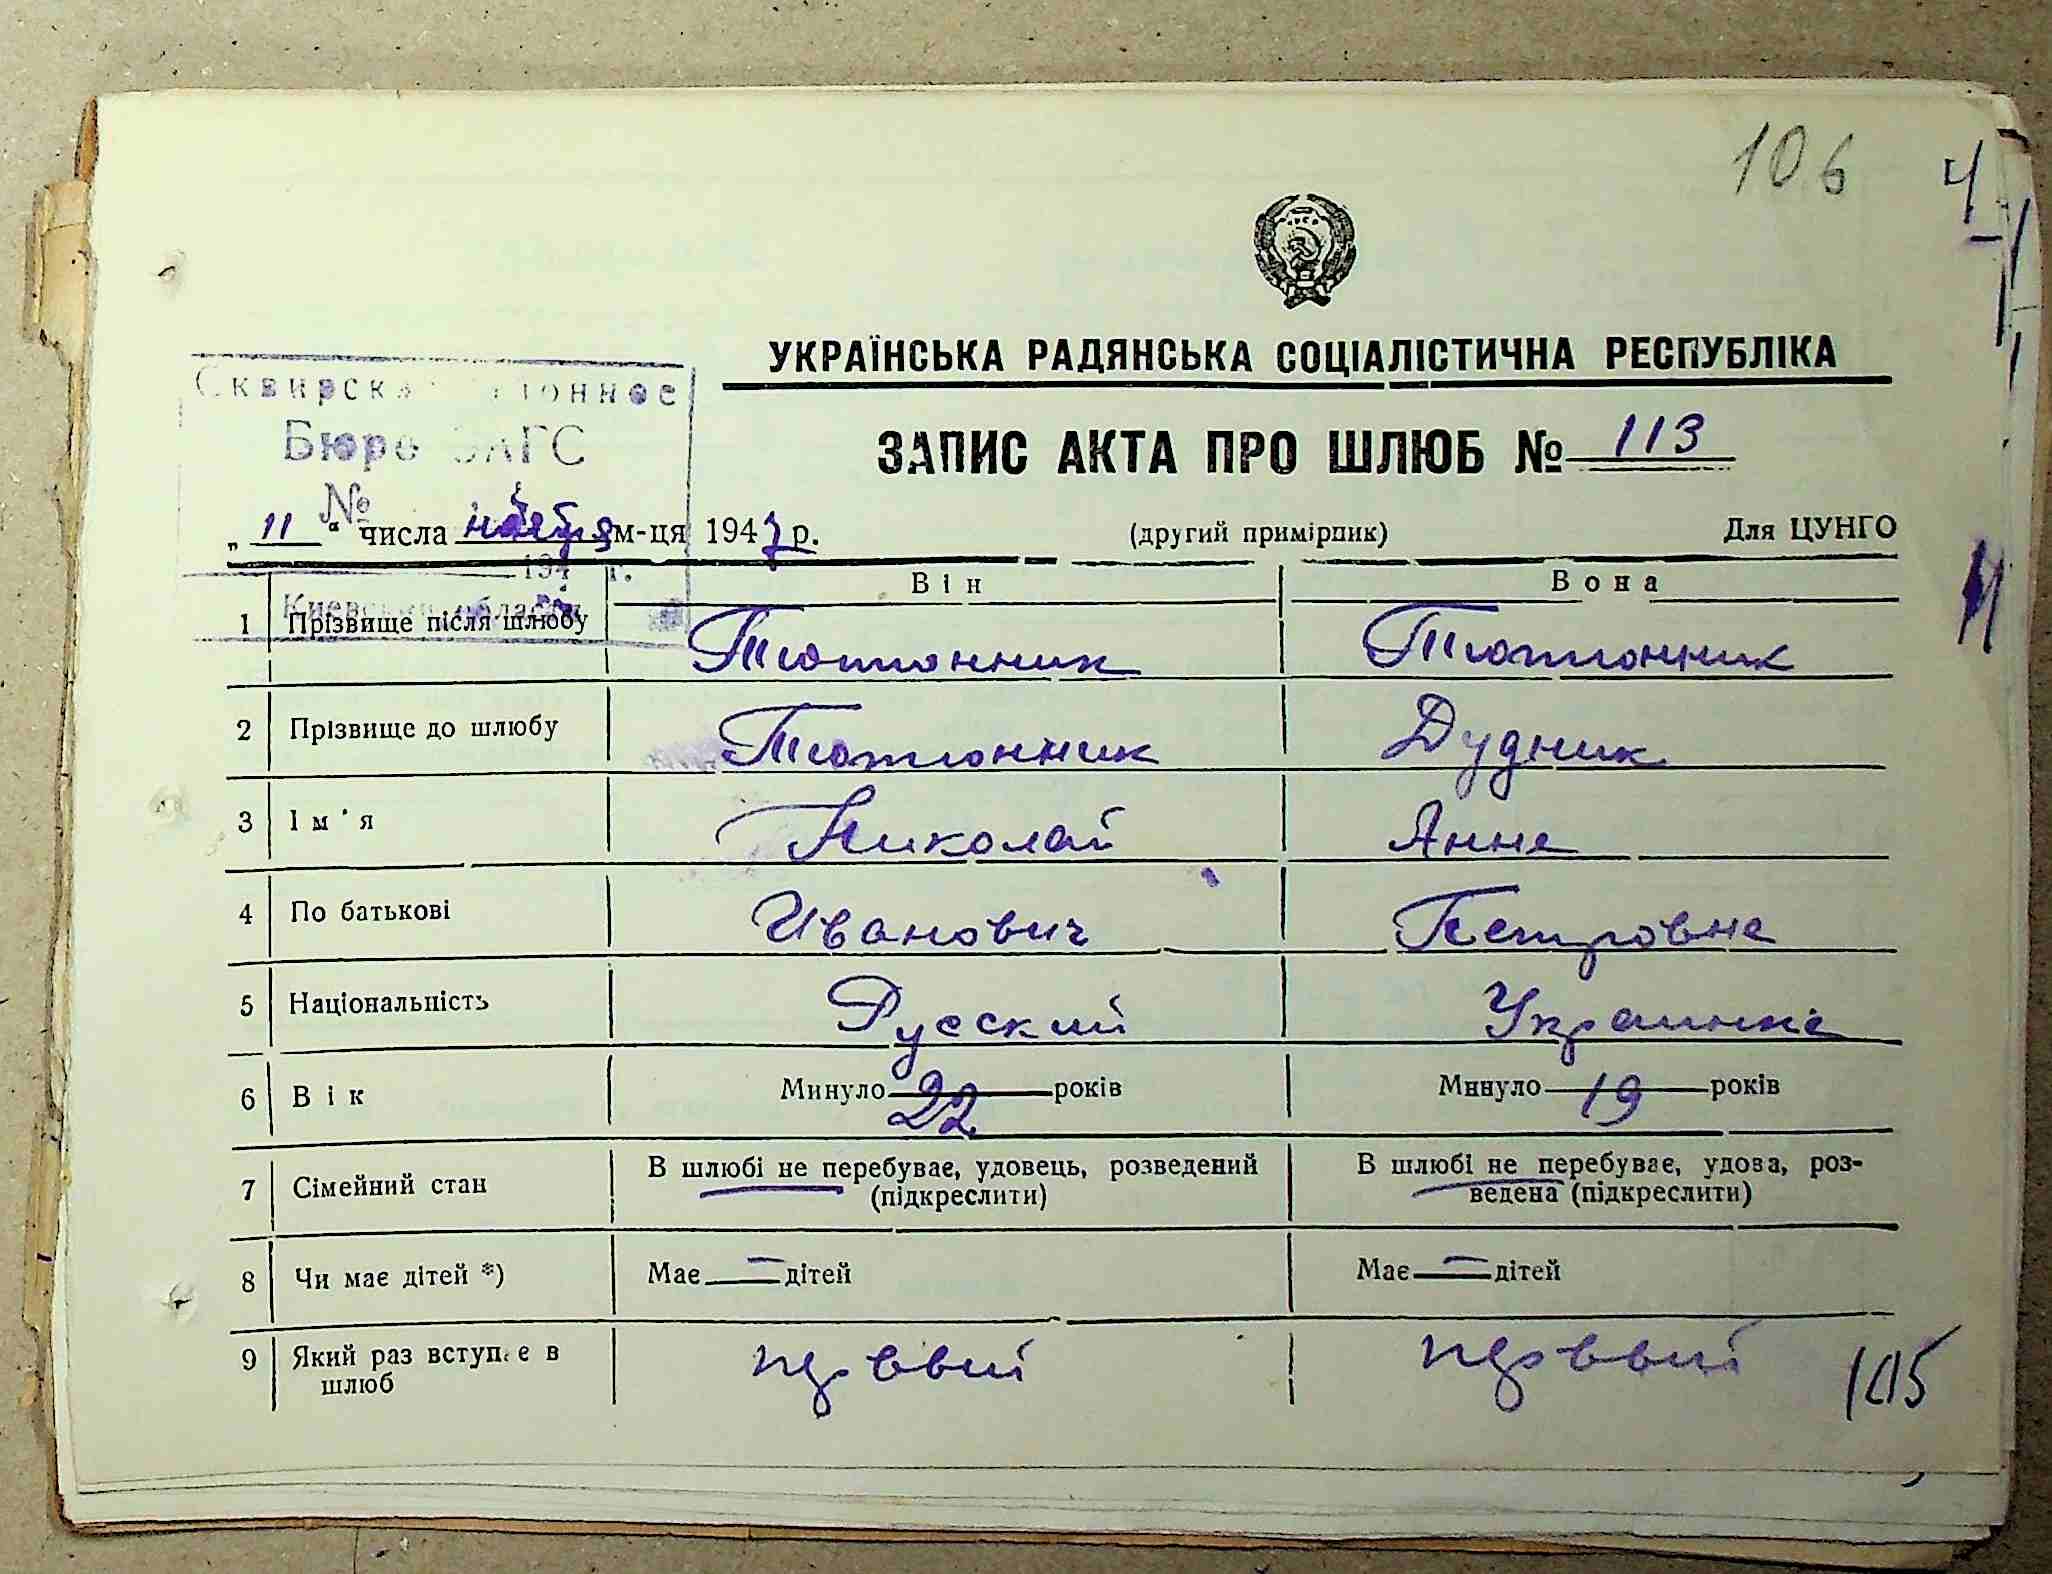 106
УКРАЇНСЬКА РАДЯНСЬКА СОЦІАЛІСТИЧНА РЕСПУБЛІКА
Сквирск онное
Бюро ЗАГС
№
ЗАПИС АКТА ПРО ШЛЮБ № 113
„ 11 “ числа ноября м-ця 1947 р. (другий примірник) Для ЦУНГО
194 г.
Киевской области
Він Вона
1 Прізвище після шлюбу Тютюнник Тютюнник
2 Прізвище до шлюбу Тютюнник Дудник
3 Ім'я Николай Анна
4 По батькові Иванович Петровна
5 Національність Русский Украинка
6 Вік Минуло 22 років Минуло 19 років
7 Сімейний стан В шлюбі не перебуває, удовець, розведений В шлюбі не перебуває, удова, роз-
(підкреслити) ведена (підкреслити)
8 Чи має дітей *) Має — дітей Має — дітей
9 Який раз вступає в первый первый
шлюб
105